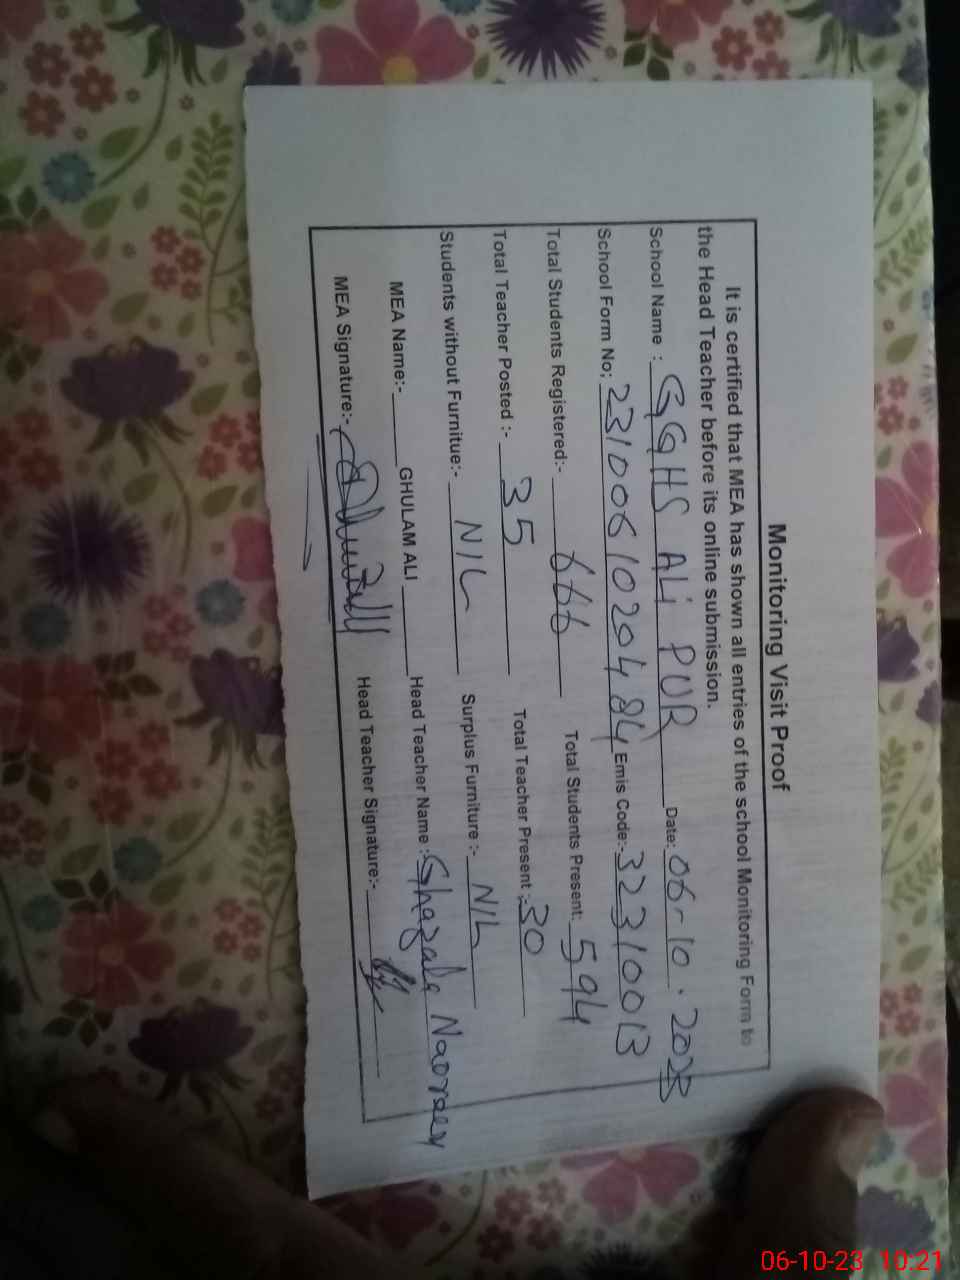 Monitoring Visit Proof
It is certified that MEA has shown all entries of the school Monitoring Form to
the Head Teacher before its online submission.
School Name : GGHS ALi PUR Date: 06-10.2023
School Form No; 2310061020484 Emis Code:- 32310013
Total Students Registered:- 666 Total Students Present: 594
Total Teacher Posted :- 35 Total Teacher Present :- 30
Students without Furnitue:- NIL Surplus Furniture :- NIL
MEA Name:- GHULAM ALI Head Teacher Name : Ghazala
MEA Signature:- Head Teacher Signature:-
06-10-23 10:21